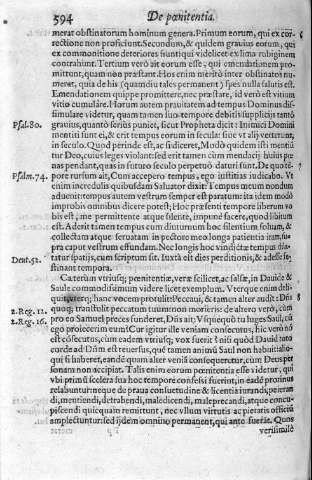 594
De pœnitentia.
merat obstinatorum hominum genera. Primum eorum, qui ex cor-
rectione non proficiunt. Secundum, & quidem grauius eorum, qui
ex commonitione deteriores fiunt: qui videlicet ex lima rubiginem
contrahunt. Tertium verò ait eorum esse, qui emendationem pro-
mittunt, quam non præstant. Hos enim meritò inter obstinatos nu-
merat, quia de his (quamdiu tales permanent) spes nulla salutis est.
Emendationem quippe promittere, nec præstare, id verò est vitium
vitio cumulare. Horum autem prauitatem ad tempus Dominus dis-
simulare videtur, quam tamen suo tempore debitis suppliciis tantò
grauius, quantò seriùs puniet, sicut Propheta dicit: Inimici Domini
Psal. 80.
mentiti sunt ei, & erit tempus eorum in secula: siue vt alij verterunt,
in seculo. Quod perinde est, ac si diceret, Modò quidem isti mentiũ
tur Deo, cuius leges violant: sed erit tamen cùm mendacij huius pœ
nas pendant, quas in futuro seculo perpetuò daturi sunt. De quo tẽ-
Psalm. 74.
pore rursum ait, Cum accepero tempus, ego iustitias iudicabo. Vt
enim incredulis quibusdam Saluator dixit: Tempus meum nondum
aduenit: tempus autem vestrum semper est paratum: ita idem modò
improbis omnibus dicere potest: Hoc præsenti tempore liberum vo
bis est, me permittente atque silente, impunè facere, quod libitum
est. Aderit tamen tempus cum diuturnum hoc silentium soluam, &
collectam atque seruatam in pectore meo longa patientia iram, su-
pra caput vestrum effundam. Nec longis hoc vindictæ tempus dila-
Deut. 32.
tatur spatijs, cum scriptum sit. Iuxta est dies perditionis, & adesse fe-
stinant tempora.
Cæterùm vtriusq; pœnitentiæ, veræ scilicet, ac falsæ, in Dauide &
Saule commodissimum videre licet exemplum. Vterque enim deli-
hanc vocem protulit: Peccaui, & tamen alter audit: Dñs
2. Reg. 12.
quoq; transtulit peccatum tuum: non morieris: de altero verò, cùm
2. Reg. 16.
pro eo Samuel preces funderet, Dñs ait; Vsquequò tu luges Saul, cũ
ego proiecerim eum? Cur igitur ille veniam consecutus, hic verò nõ
est cõsecutus, cum eadem vtriusq, vox fuerit? nisi quòd Dauid toto
corde ad Dñm est reuersus, què tamen animũ Saul non habuit: alio-
qui si habueret, eandẽ quam alter veniã consequeretur, cùm Deus per
sonam non accipiat. Talis enim eorum pœnitentia esse videtur, qui
vbi primũ scelera sua hoc tempore confessi fuerint, in eadẽ pronius
relabuntur: neque de praua consuetudine & licentia iurandi, peieran
di, mentiendi, detrahendi, maledicendi, malè precandi, atque concu-
piscendi quicquam remittunt, nec vllum virtutis ac pietatis officiũ
amplectuntur: sed ijdem omnino permanent, qui antè fuerãt. Quos
verisimilè